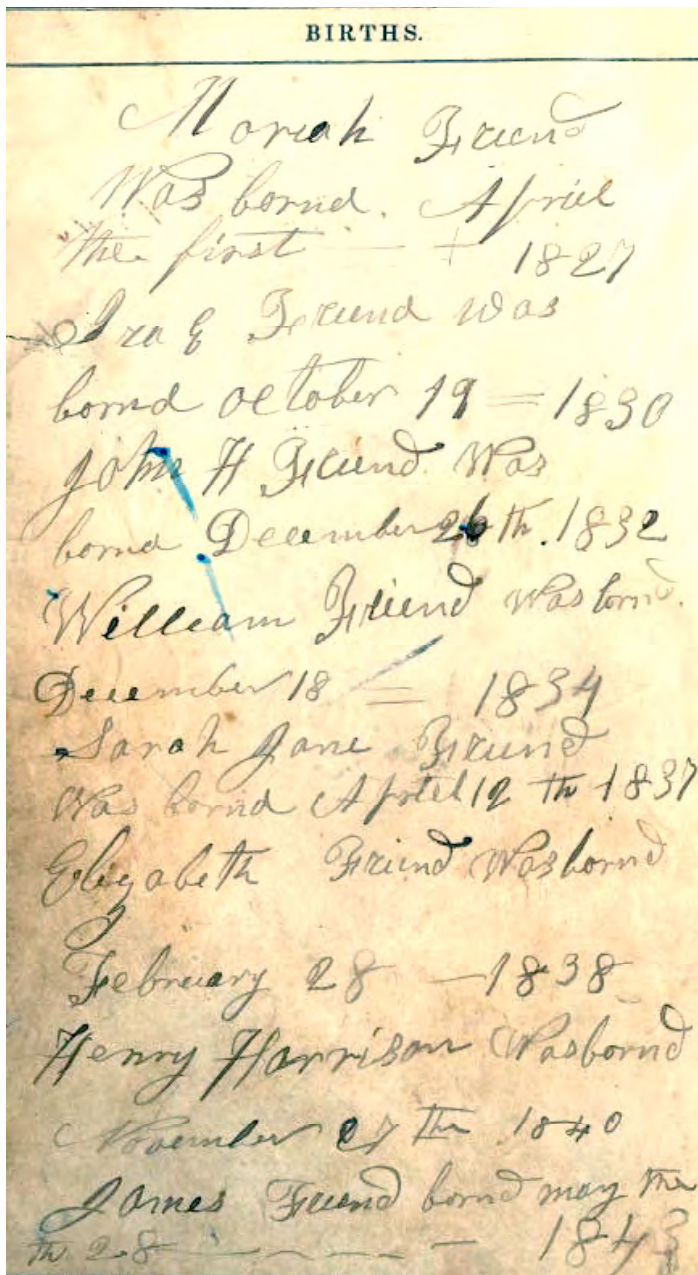 BIRTHS.
Moriah Friend
Was bornd. April
the first — + 1827
Ira E Friend was
bornd october 19 = 1830
John H Friend Was
bornd December 26th. 1832
William Friend Was bornd.
December 18 = 1834
Sarah Jane Friend
Was bornd April 12 th 1837
Elizabeth Friend Was bornd
February 28 — 1838
Henry Harrison Was bornd
November 27 th 1840
James Friend bornd may the
th 28 — — — — — 1843